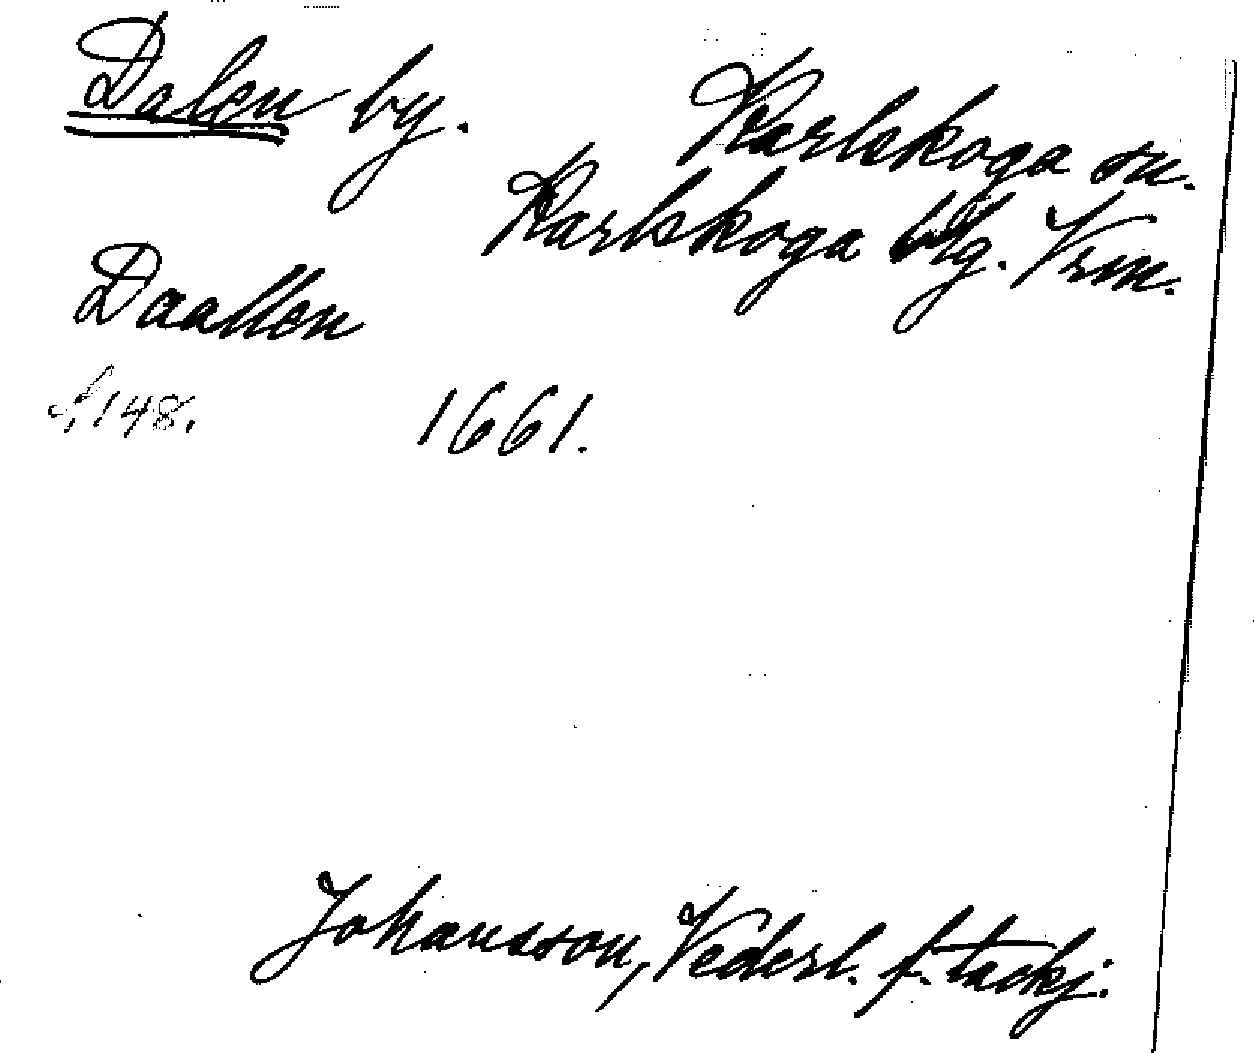 Dalen by.
Karlskoga sn.
Karlskoga blg. Vrm.
Daallen
s. 148.
1661.
Johansson, Vederl. f. tackj: